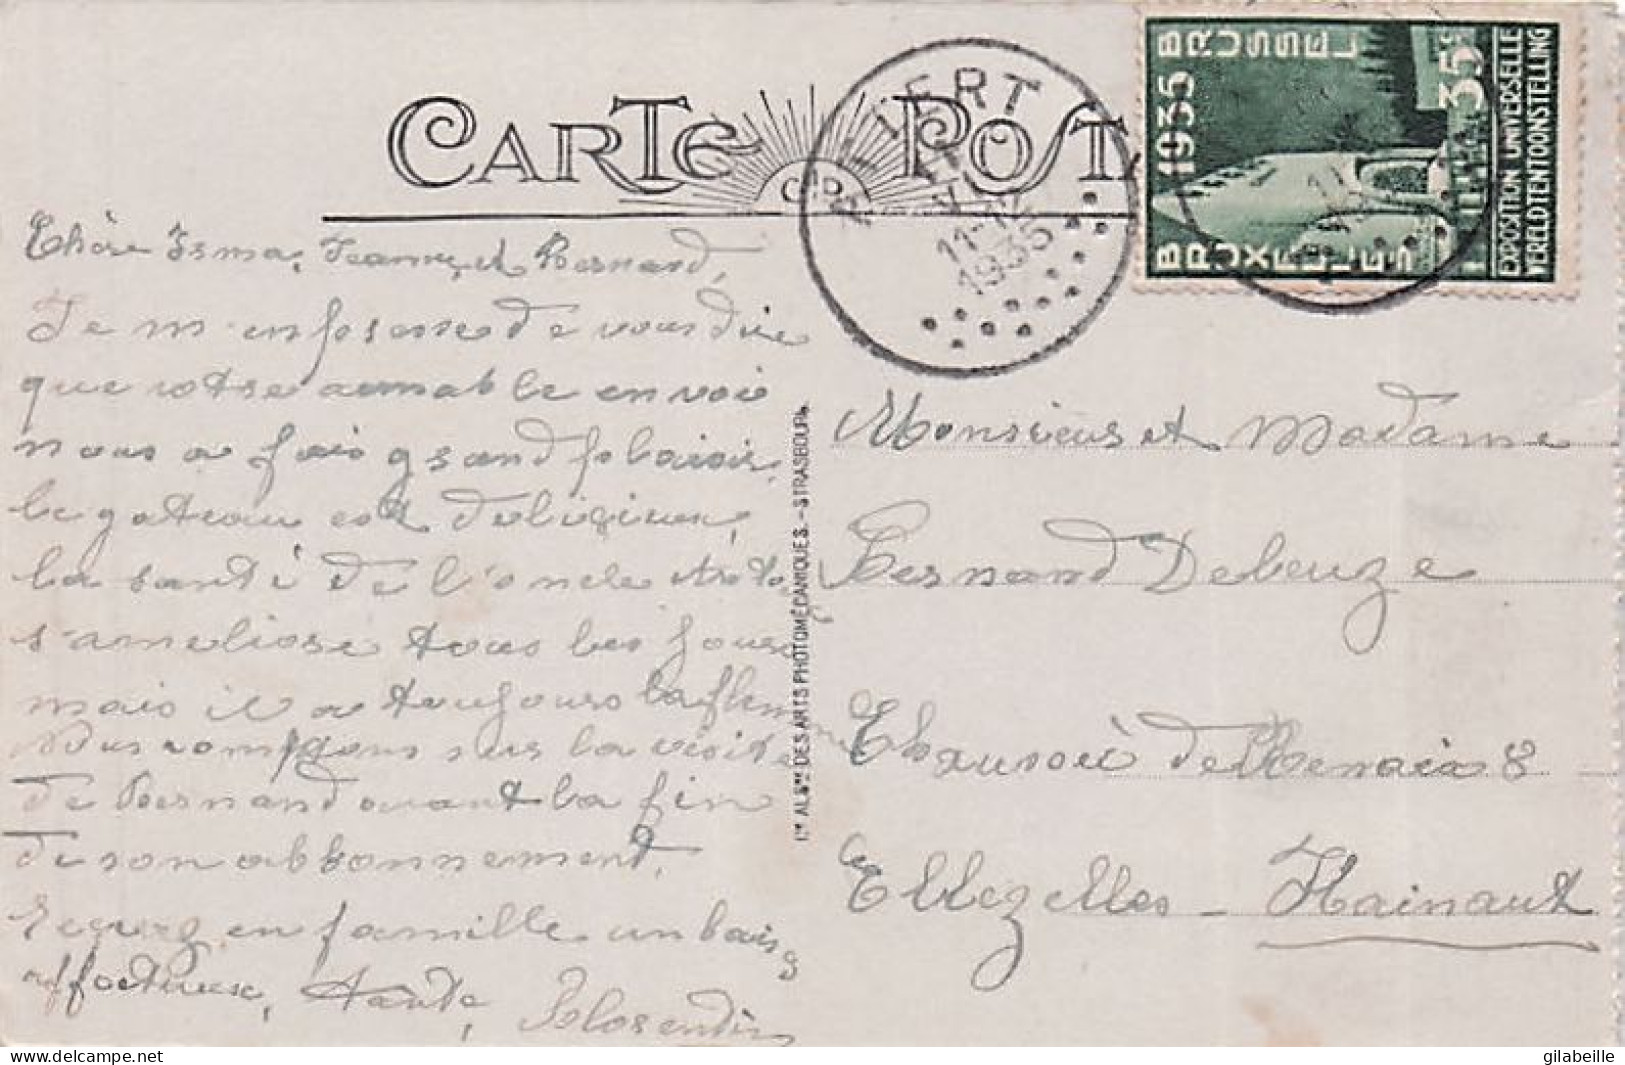 CARTE POSTALE
C.A.P.
1935 BRUSSEL
BRUXELLES
35c
EXPOSITION UNIVERSELLE
WERELDTENTOONSTELLING
11-12
1935
Chère Irma, Jeanne, et Bernard,
Je m'enpresse de vous dire
que votre aimable envoie
nous a fais grand plaisir,
le gateau est delicieux,
la santé de l'oncle
s'ameliore tous les jours
mais il a toujours la flemme
Nous comptons sur la visite
de Bernard avant la fin
de son abbonnement.
Recevez en famille un baisé
affectueux, tante, Florentin
Ie ALSne DES ARTS PHOTOMÉCANIQUES. - STRASBOURG
Monsieur et Madame
Fernand Debeuze
Chaussé de Renaix 8
Ellezelles - Hainaut
delcampe.net
gilabeille